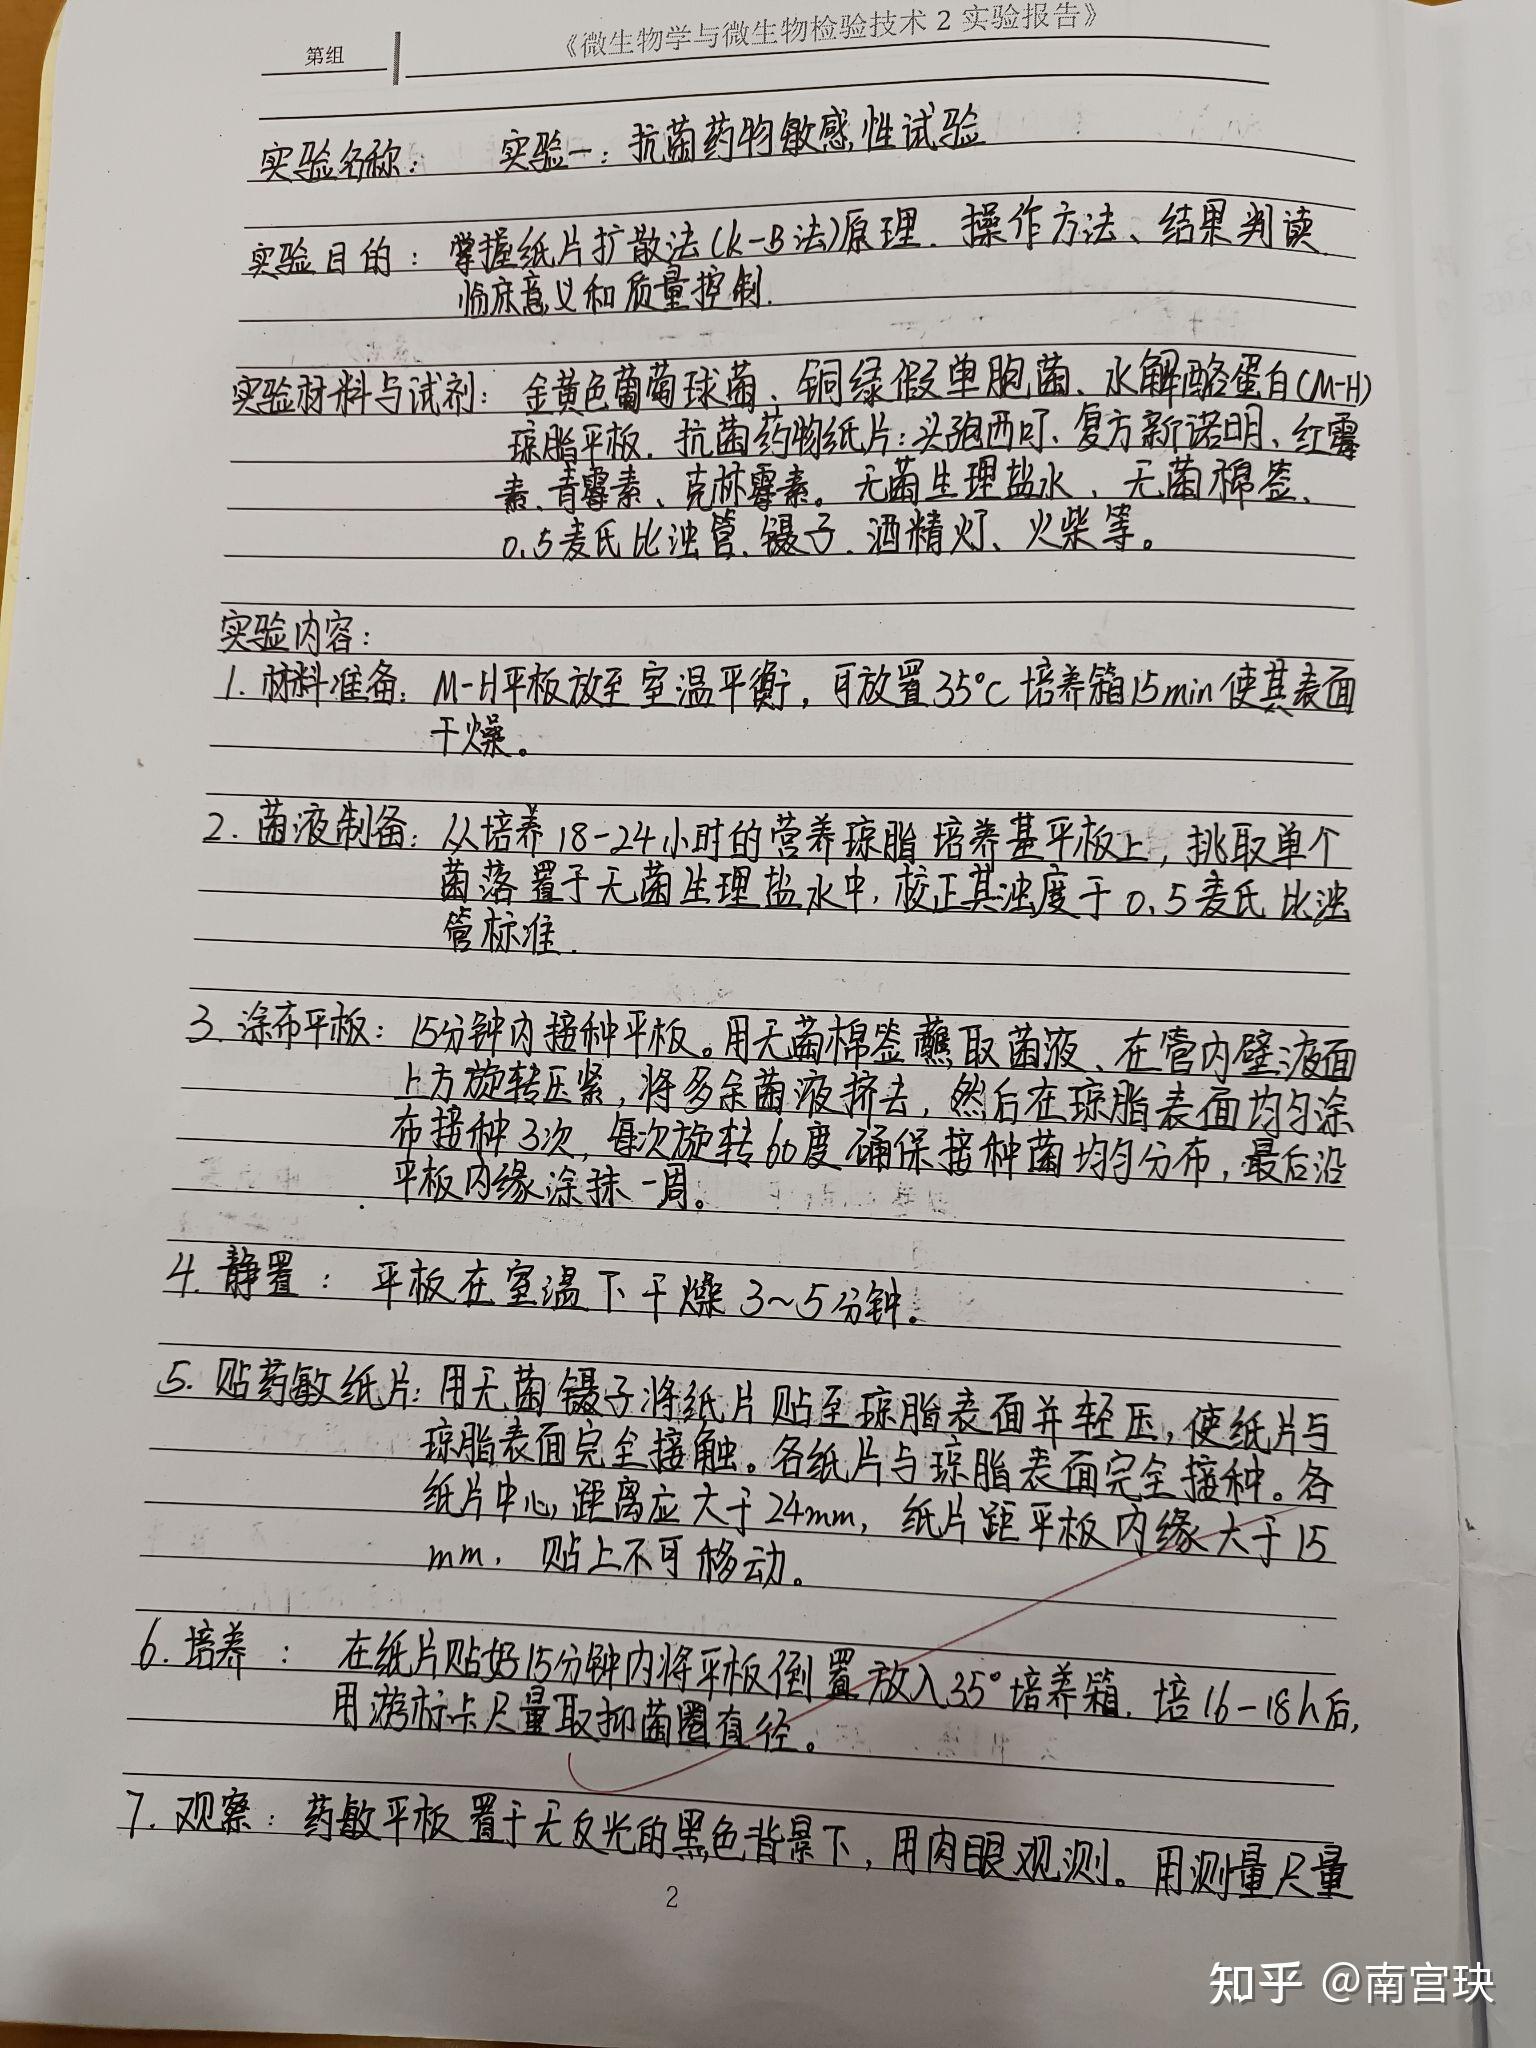 第组
《微生物学与微生物检验技术 2 实验报告》
实验名称： 实验一：抗菌药物敏感性试验
实验目的：掌握纸片扩散法(K-B法)原理、操作方法、结果判读、
临床意义和质量控制.
实验材料与试剂：金黄色葡萄球菌、铜绿假单胞菌、水解酪蛋白(M-H)
琼脂平板. 抗菌药物纸片：头孢西叮、复方新诺明、红霉
素、青霉素、克林霉素。无菌生理盐水、无菌棉签、
0.5麦氏比浊管、镊子、酒精灯、火柴等。
实验内容：
1. 材料准备：M-H平板放至室温平衡，可放置35°C培养箱15min使其表面
干燥。
2. 菌液制备：从培养18-24小时的营养琼脂培养基平板上，挑取单个
菌落置于无菌生理盐水中，校正其浊度于0.5麦氏比浊
管标准.
3. 涂布平板：15分钟内接种平板。用无菌棉签蘸取菌液、在管内壁液面
上方旋转压紧，将多余菌液挤去，然后在琼脂表面均匀涂
布接种3次，每次旋转60度确保接种菌均匀分布，最后沿
平板内缘涂抹一周。
4. 静置：平板在室温下干燥3~5分钟。
5. 贴药敏纸片：用无菌镊子将纸片贴至琼脂表面并轻压，使纸片与
琼脂表面完全接触。各纸片与琼脂表面完全接种。各
纸片中心距离应大于24mm，纸片距平板内缘大于15
mm，贴上不可移动。
6. 培养：在纸片贴好15分钟内将平板倒置放入35°培养箱，培16-18h后，
用游标卡尺量取抑菌圈直径。
7. 观察：药敏平板置于无反光的黑色背景下，用肉眼观测。用测量尺量
2
知乎 @南宫玦